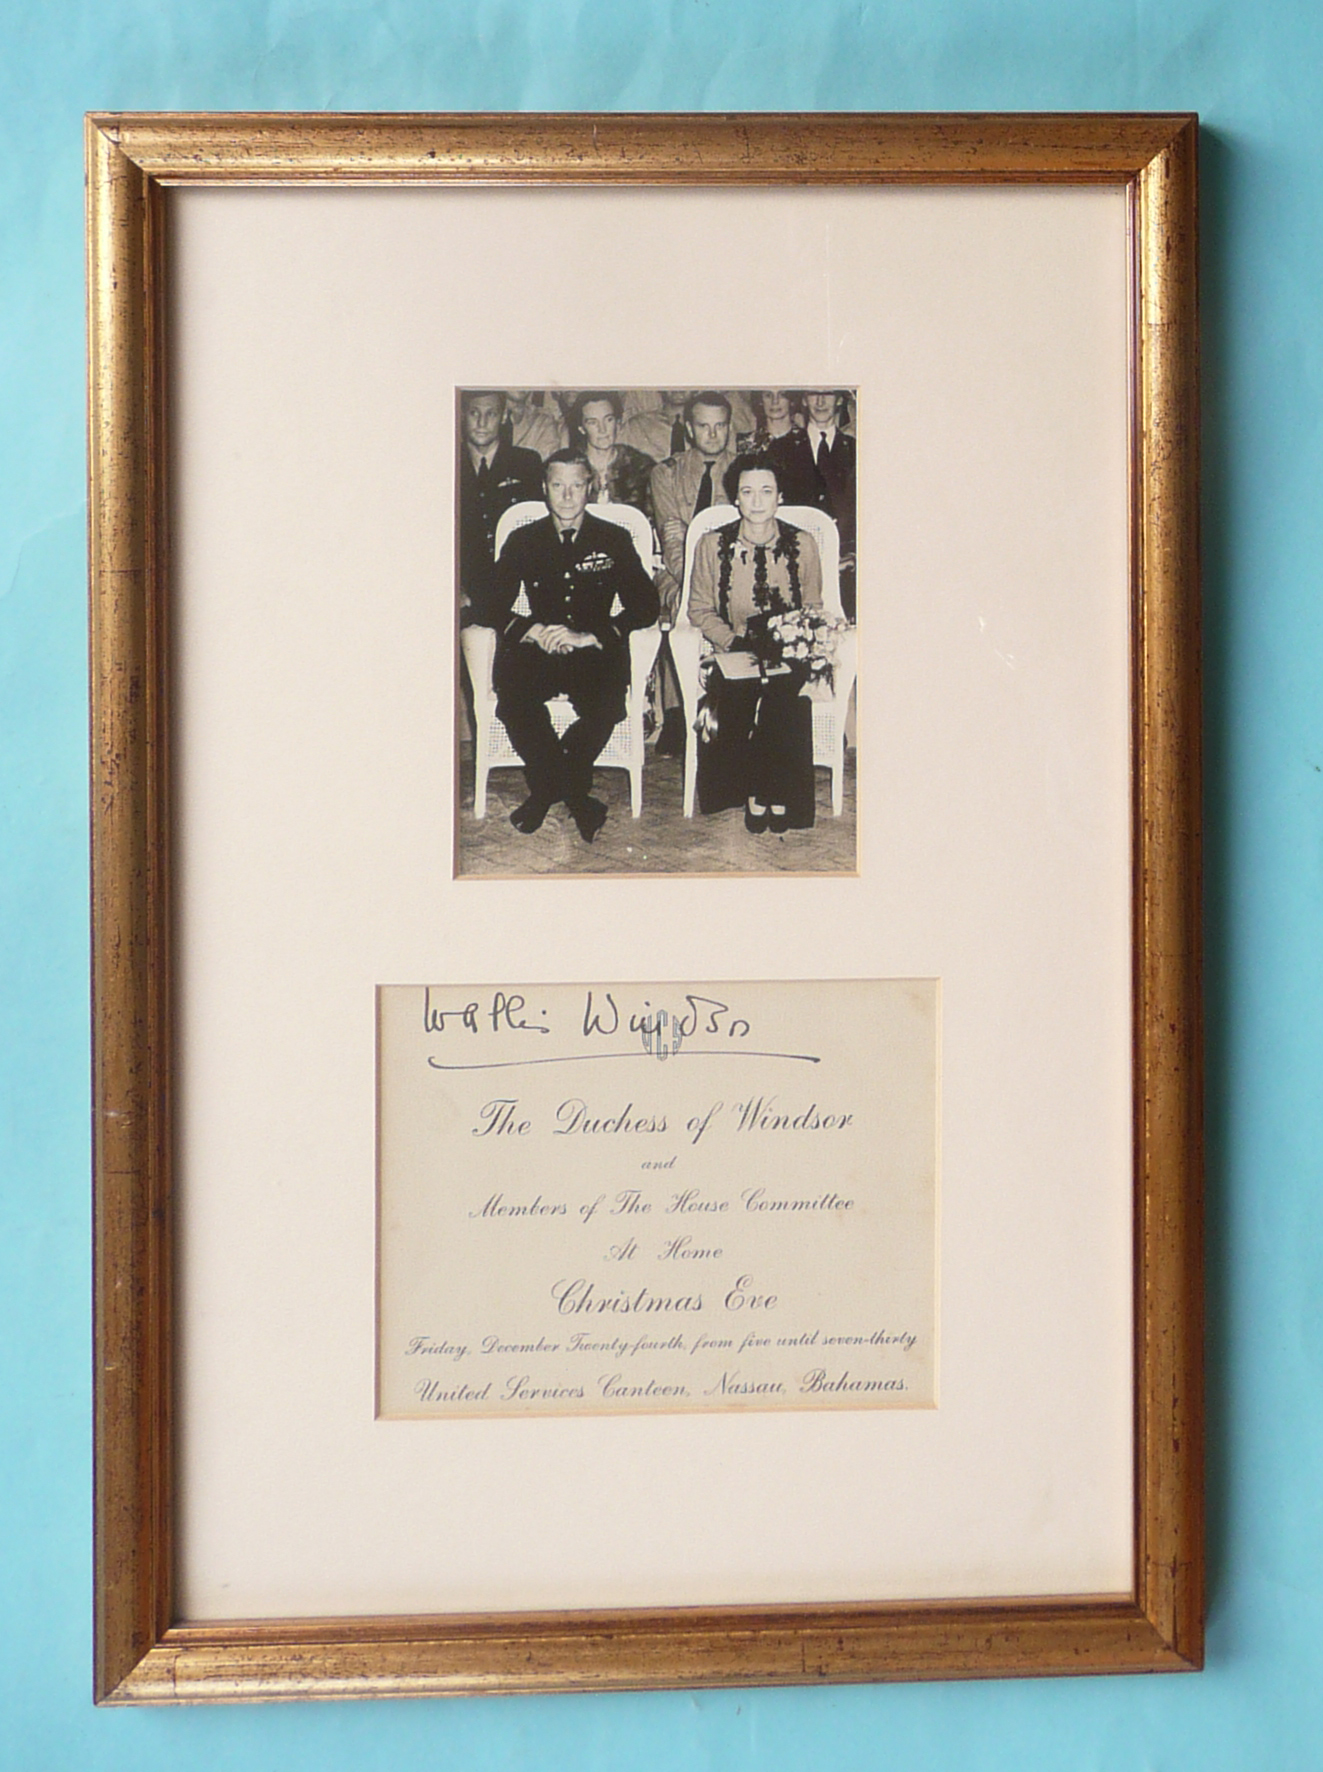 Wallis Windsor
The Duchess of Windsor
and
Members of The House Committee
At Home
Christmas Eve
Friday, December Twenty-fourth, from five until seven-thirty
United Services Canteen, Nassau, Bahamas.